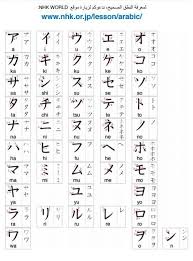 لمعرفة النطق الصحيح، ندعوكم لزيارة موقع NHK WORLD
www.nhk.or.jp/lesson/arabic/
ア イ ウ エ オ
a i u e o
カ キ ク ケ コ
ka ki ku ke ko
サ シ ス セ ソ
sa shi su se so
タ チ ツ テ ト
ta chi tsu te to
ナ ニ ヌ ネ ノ
na ni nu ne no
ハ ヒ フ ヘ ホ
ha hi fu he ho
マ ミ ム メ モ
ma mi mu me mo
ヤ ユ ヨ
ya yu yo
ラ リ ル レ ロ
ra ri ru re ro
ワ ヲ ン
wa o n